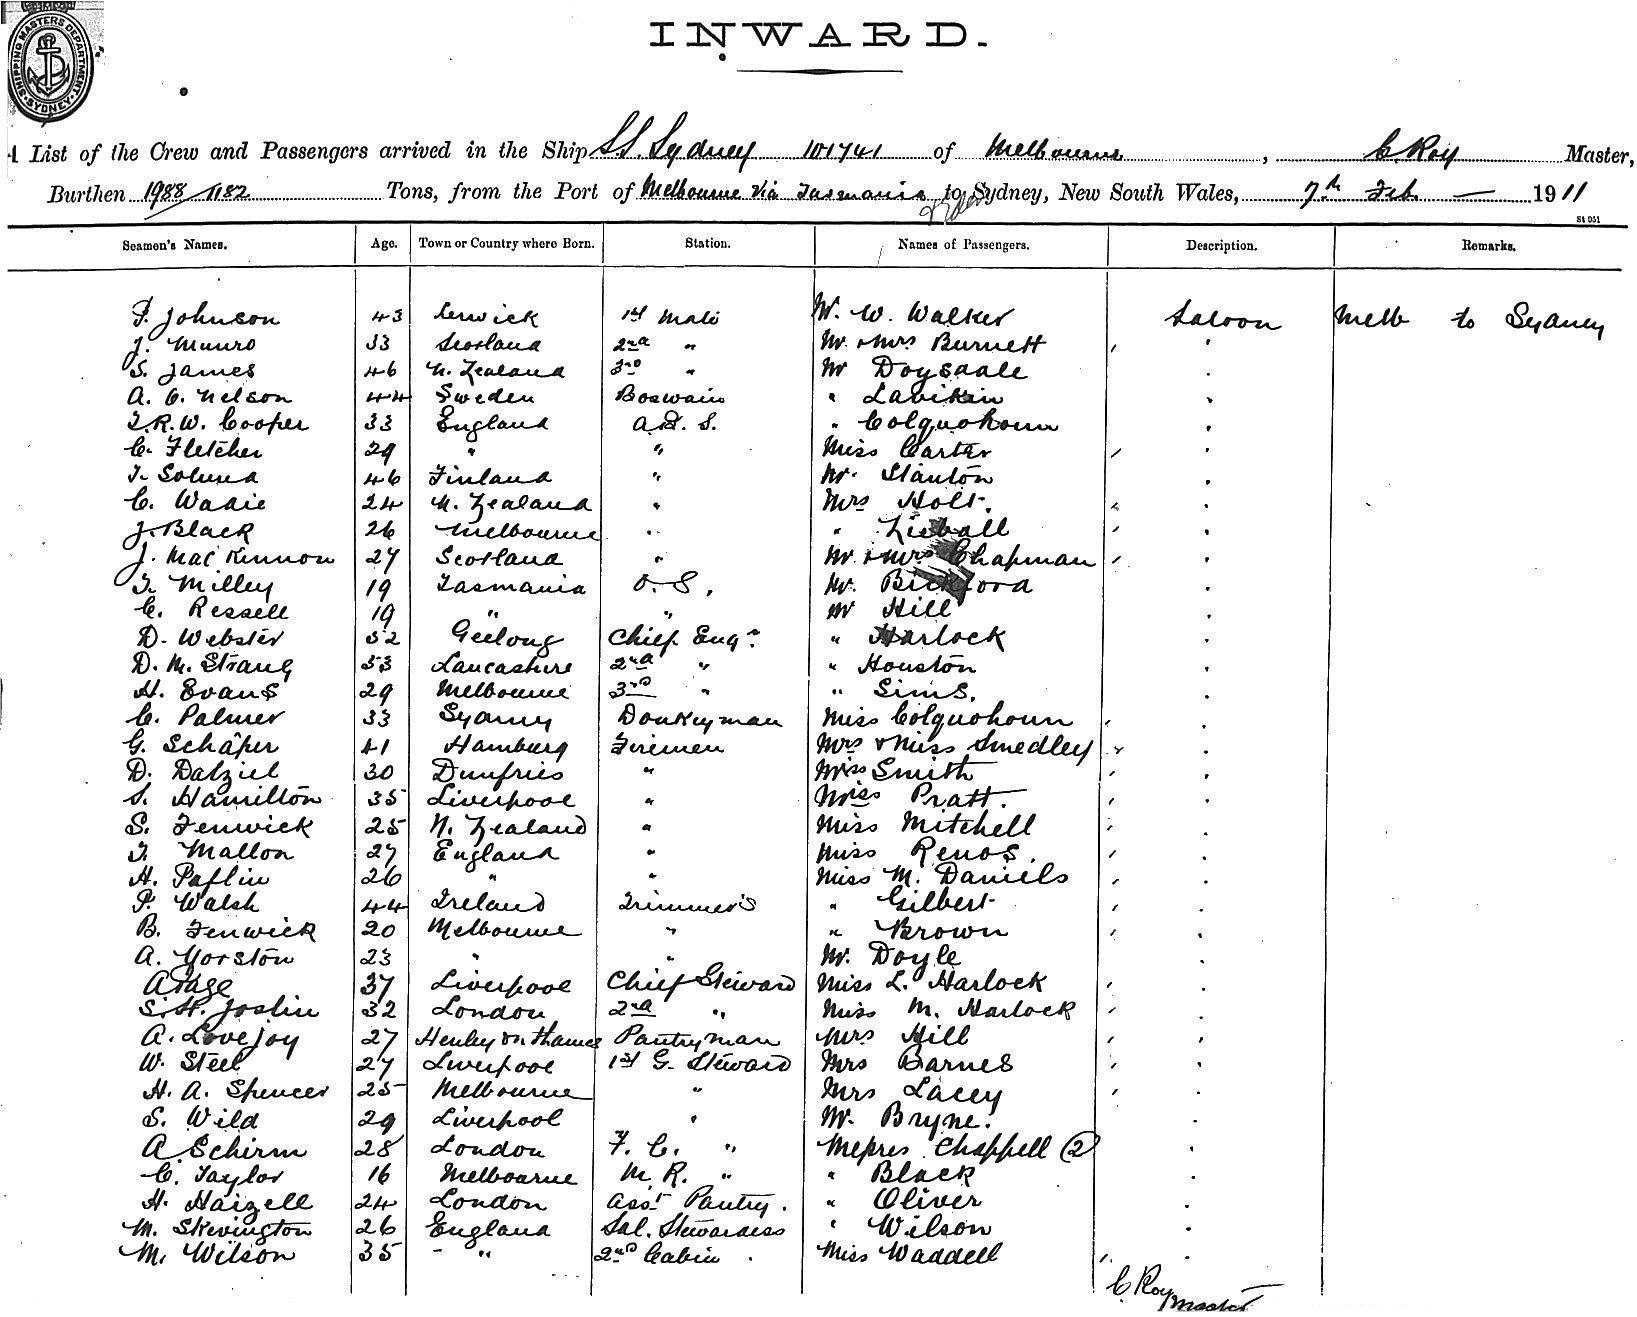 SHIPPING MASTERS DEPARTMENT SYDNEY
INWARD.
List of the Crew and Passengers arrived in the Ship S.S. Sydney 101741 of Melbourne, C Roy Master,
Burthen 1988/1182 Tons, from the Port of Melbourne via Tasmania to Sydney, New South Wales, 7th Feb — 1911
St 051
Seamen's Names. Age. Town or Country where Born. Station. Names of Passengers. Description. Remarks.
F. Johnson 43 Lerwick 1st Mate Mr. W. Walker Saloon Melb to Sydney
J. Munro 33 Scotland 2nd " Mr. & Mrs Burnett
S. James 46 N. Zealand 3rd " Mr
A. C. Nelson 44 Sweden Boswain "
T.R.W. Cooper 33 England A.B.S. " Colquohoun
C. Fletcher 29 " " Miss Carter
T. 46 Finland " Mr. Stanton
C. Wadie 24 N. Zealand " Mrs Holt.
J. Black 26 Melbourne " "
J. MacKinnon 27 Scotland " Mr. & Mrs Chapman
T. Milley 19 Tasmania O.S. Mr. Bickford
C. Ressell 19 " " Mr Hill
D. Webster 52 Geelong Chief Engr. " Harlock
D. M. Strang 53 Lancashire 2nd " " Houston
H. Evans 29 Melbourne 3rd " " Sims.
C. Palmer 33 Sydney Donkeyman Miss Colquohoun
G. Schäper 41 Hamburg Firemen Mrs & Miss Smedley
D. Dalziel 30 Dumfries " Miss Smith
S. Hamilton 35 Liverpool " Miss Pratt.
S. Fenwick 25 N. Zealand " Miss Mitchell
T. Mallon 27 England " Miss Renos.
H. Paflin 26 " " Miss M. Daniels
P. Walsh 44 Ireland Trimmers " Gilbert
B. Fenwick 20 Melbourne " " Brown
A. Yorston 23 " " Mr. Doyle
A Page 37 Liverpool Chief Steward Miss L. Harlock
S. H. Joslin 32 London 2nd " Miss M. Harlock
A. Lovejoy 27 Henley on Thames Pantryman Mrs Hill
W. Steel 27 Liverpool 1st G. Steward Mrs Barnes
H. A. Spencer 25 Melbourne " Mrs Lacey
S. Wild 29 Liverpool " Mr. Bryne.
A Schirm 28 London F. C. " Messrs Chappell (2)
C. Taylor 16 Melbourne M. R. " " Black
H. Haizell 24 London Asst Pantry. " Oliver
M. Skevington 26 England Sal. Stewardess " Wilson
M. Wilson 35 " " 2nd Cabin. Miss Waddell
C. Roy
Master